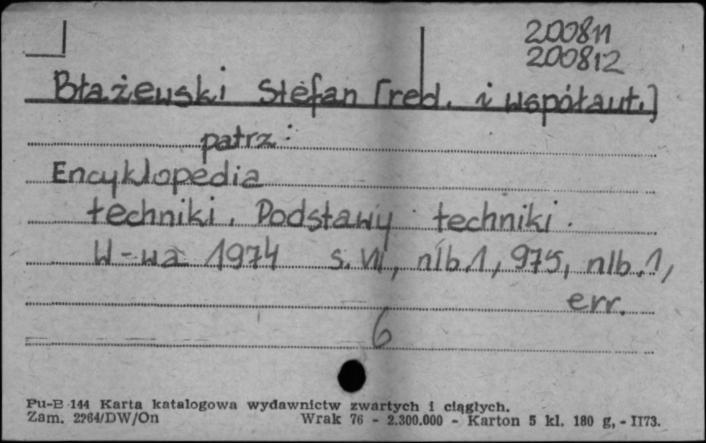 200811
200812
Błażewski Stefan [red. i współaut.]
patrz:
Encyklopedia
techniki. Podstawy techniki.
W-wa 1974 s. VII, nlb.1, 975, nlb.1,
err.
6
Pu-B 144 Karta katalogowa wydawnictw zwartych i ciągłych.
Zam. 2264/DW/On Wrak 76 - 2.300.000 - Karton 5 kl. 180 g, - II73.